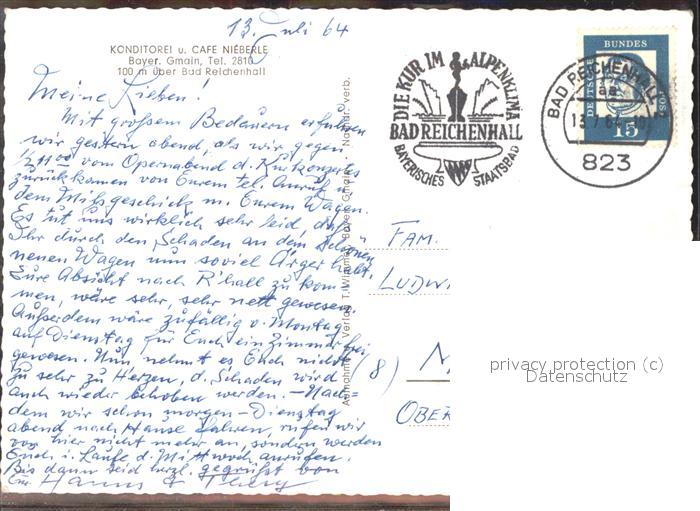 13. Juli 64
KONDITOREI u. CAFE NIEBERLE
Bayer. Gmain, Tel. 2810
100 m über Bad Reichenhall
Meine Lieben!
Mit großem Bedauern erfuhren
wir gestern abend, als wir gegen
1/2 11 00 vom Opernabend d. Kurkonzertes
zurückkamen von Eurem tel. Anruf u.
dem Mißgeschick m. Eurem Wagen.
Es tut uns wirklich sehr leid, daß
Ihr durch den Schaden an dem schönen
neuen Wagen nun soviel Ärger habt.
Eure Absicht nach R'hall zu kom-
men, wäre sehr, sehr nett gewesen.
Außerdem wäre zufällig v. Montag
auf Dienstag für Euch ein Zimmer frei
gewesen. Nun nehmt es Euch nicht
zu sehr zu Herzen, d. Schaden wird
auch wieder behoben werden. – Nach=
dem wir schon morgen – Dienstag
abend nach Hause fahren, rufen wir
von hier nicht mehr an, sondern werden
Euch i. Laufe d. Mittwoch anrufen.
Bis dann seid herzl. gegrüßt von
Eur. Hanns &
Verlag T.
Bayer. Gmain
verb.
DIE KUR IM ALPENKLIMA
BAD REICHENHALL
BAYERISCHES STAATSBAD
BAD REICHENHALL
aa
823
DEUTSCHE BUNDESPOST
15
FAM.
LUDWI
(8) N
OBER
privacy protection (c)
Datenschutz